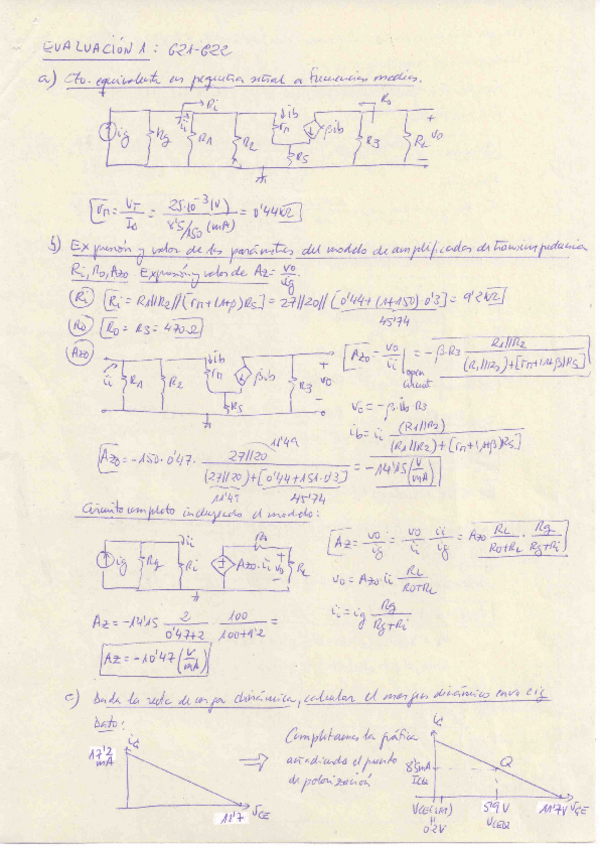 EVALUACIÓN 1: G21-G22
a) Cto. equivalente en pequeña señal a frecuencias medias.
ig Rg ii Ri R1 R2 ib rπ βib R5 R3 Ro RL + vo −
rπ = VT/IB = 25·10⁻³(V) / 8'5/150 (mA) = 0'44KΩ
b) Expresión y valor de los parámetros del modelo de amplificador de transimpedancia
Ri, Ro, Azo Expresión y valor de Az = vo/ig
Ri Ri = R1//R2//[rπ+(1+β)R5] = 27//20//[0'44+(1+150)·0'3] = 9'2KΩ
45'74
Ro Ro = R3 = 470Ω
Azo
ii R1 R2 ib rπ βib R5 R3 + vo −
Azo = vo/ii | open circuit = −β·R3 R1//R2 / (R1//R2)+[rπ+(1+β)R5]
vo = −β·ib·R3
ib = ii (R1//R2) / (R1//R2)+[rπ+(1+β)R5]
11'49
Azo = −150·0'47· 27//20 / (27//20)+[0'44+151·0'3] = −14'15 (V/mA)
11'49 45'74
Circuito completo incluyendo el modelo:
ig Rg ii Ri Azo·ii Ro + vo − RL
Az = vo/ig = vo/ii · ii/ig = Azo RL/Ro+RL · Rg/Rg+Ri
vo = Azo·ii RL/Ro+RL
ii = ig Rg/Rg+Ri
Az = −14'15 2/0'47+2 · 100/100+9'2 =
Az = −10'47 (V/mA)
c) Dada la recta de carga dinámica, calcular el margen dinámico en vo e ig
Dato:
ic
17'2 mA
11'7
VCE
⇒
Completamos la gráfica
añadiendo el punto
de polarización
ic
8'5mA
ICQ
Q
VCE(LIM)
0'2V
5'9 V
VCEQ
11'7V VCE